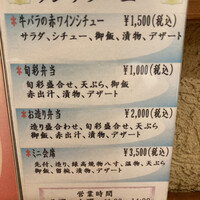 ＊牛バラの赤ワインシチュー ¥1,500(税込)
サラダ、シチュー、御飯、漬物、デザート
＊旬彩弁当 ¥1,000(税込)
旬彩盛合せ、天ぷら、御飯
赤出汁、漬物、デザート
＊お造り弁当 ¥2,000(税込)
造り盛合わせ、旬彩、天ぷら
御飯、赤出汁、漬物、デザート
＊ミニ会席 ¥3,500(税込)
先付、造り、温物、天ぷら
御飯、留椀、漬物、デザート
営業時間